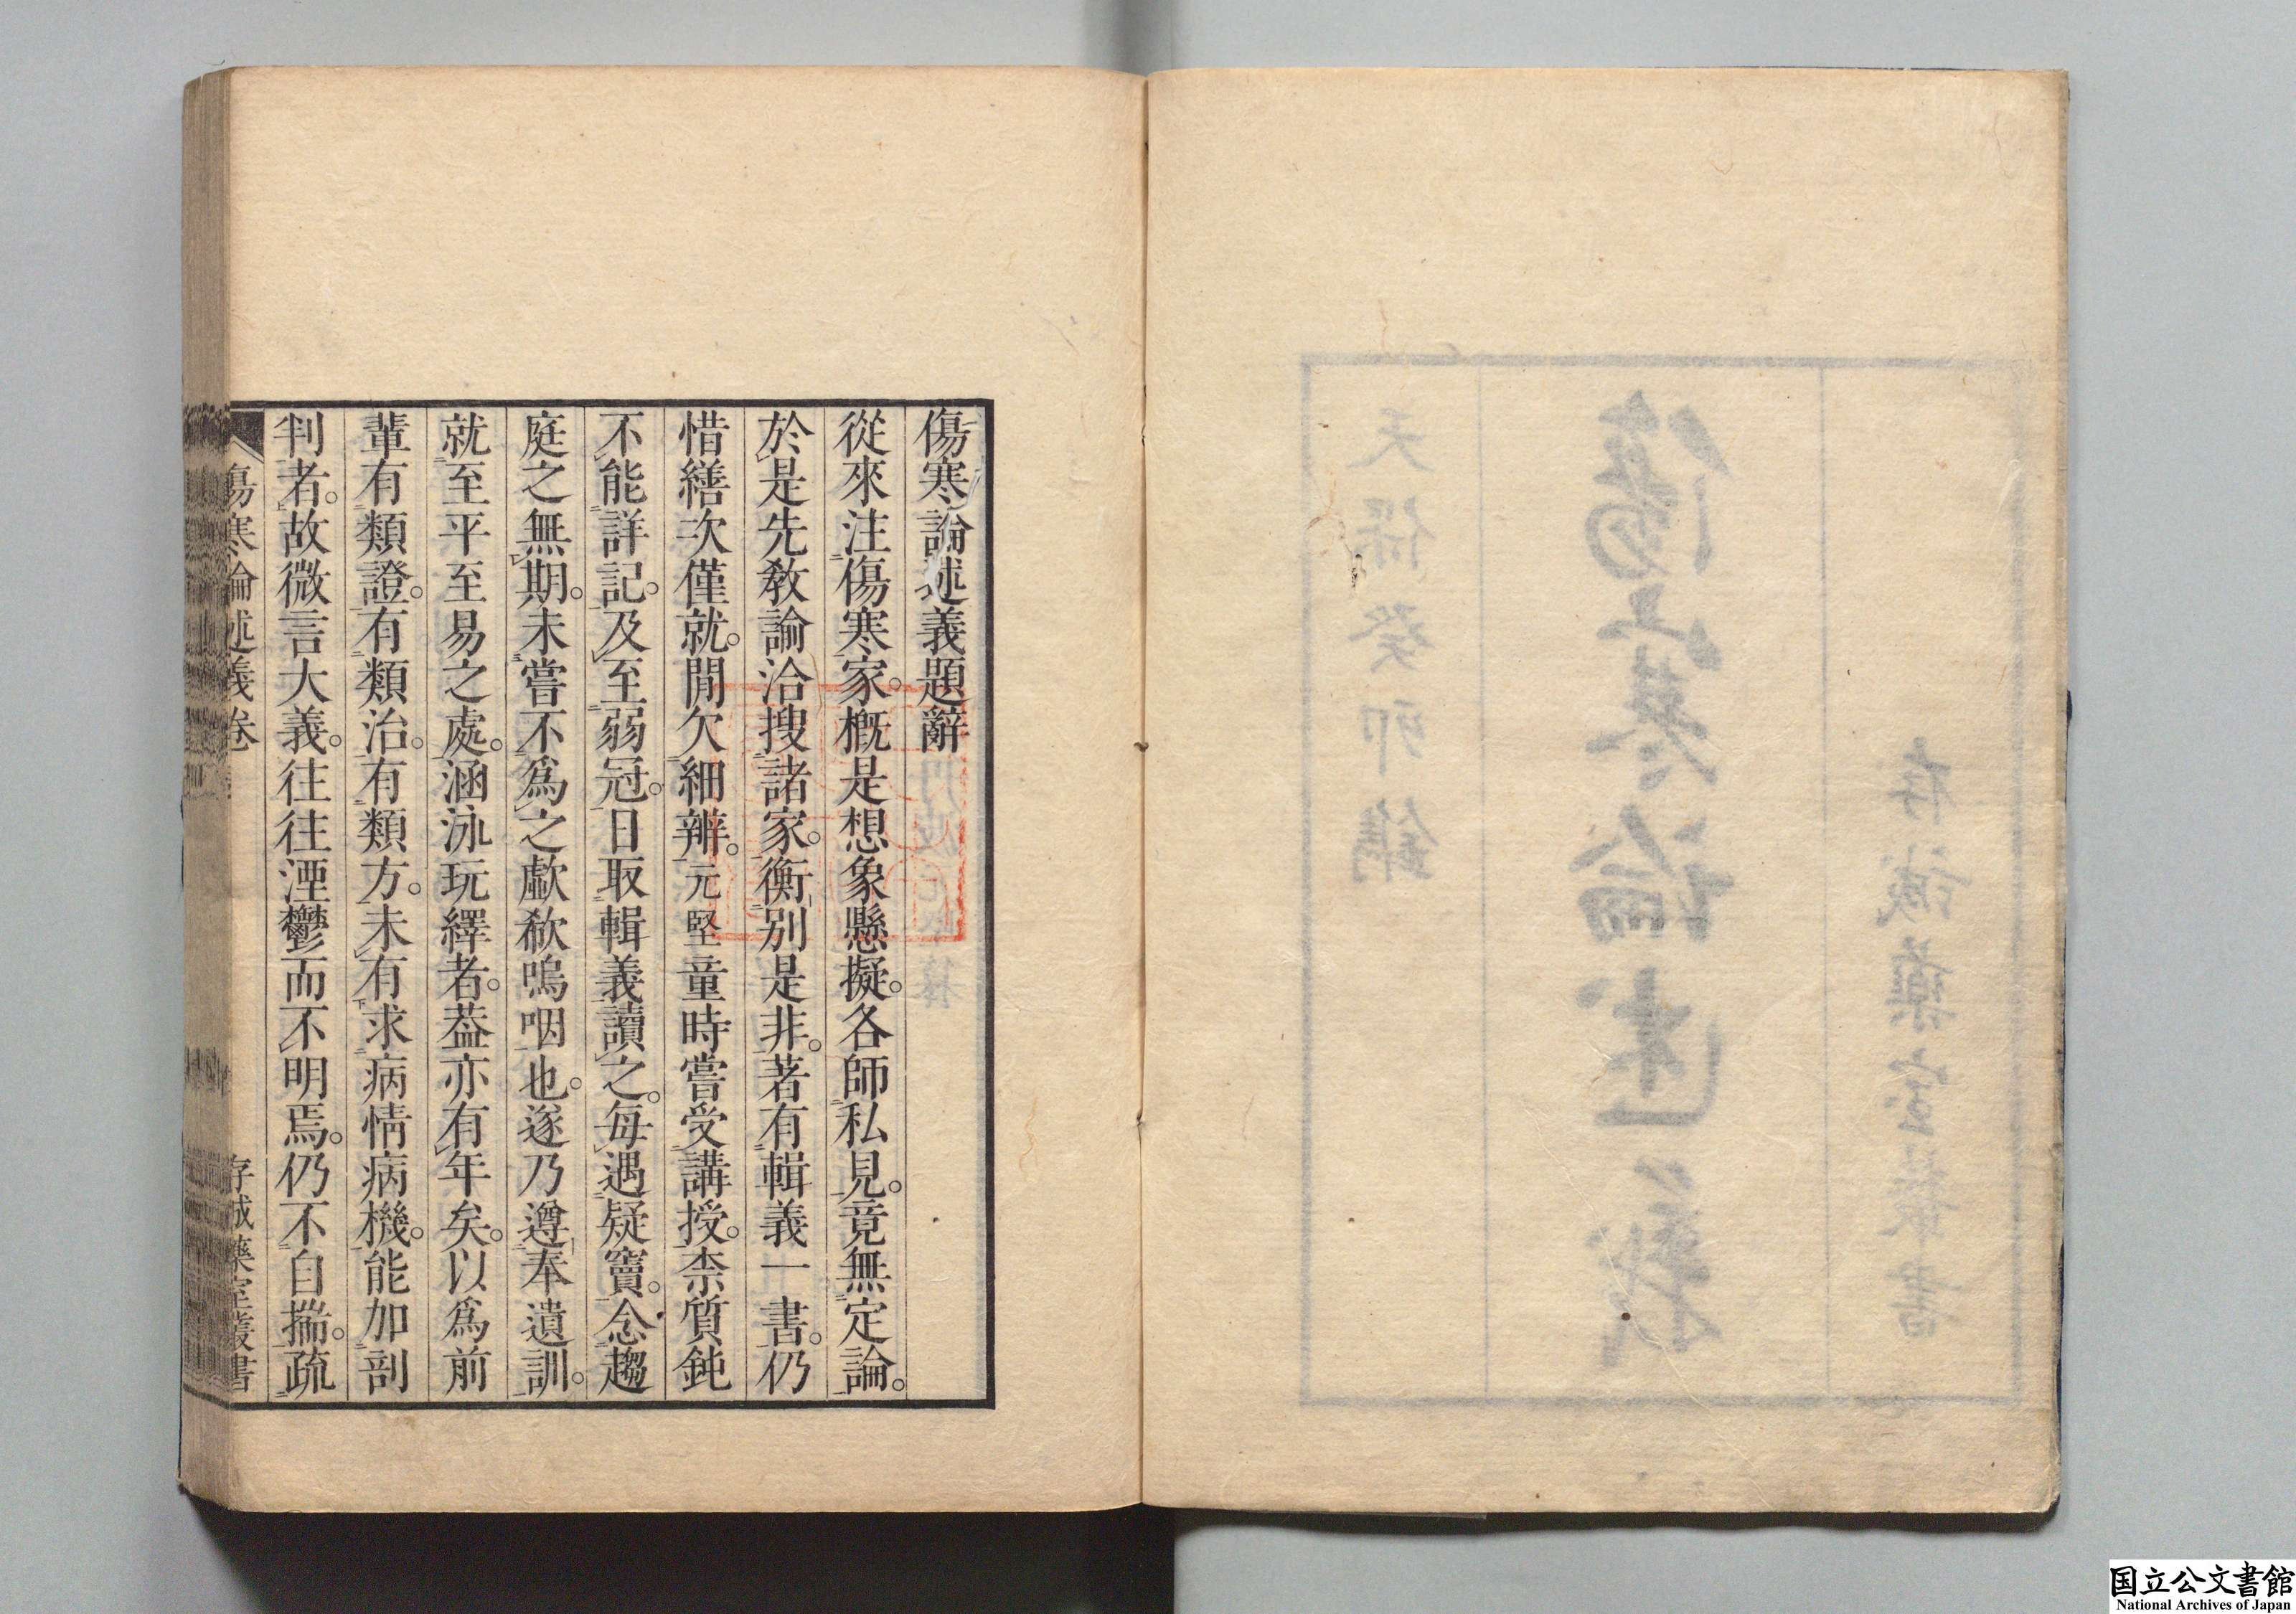 傷寒論述義題辭
從來注傷寒家。概是想象懸擬。各師私見。竟無定論。
於是先教諭洽搜諸家。衡別是非。著有輯義一書。仍
惜繕次僅就。閒欠細辨。元堅童時嘗受講授。柰質鈍
不能詳記。及至弱冠。日取輯義讀之。每遇疑竇。念趨
庭之無期。未嘗不爲之歔欷嗚咽也。遂乃遵奉遺訓。
就至平至易之處。涵泳玩繹者。葢亦有年矣。以爲前
輩有類證。有類治。有類方。未有求病情病機。能加剖
判者。故微言大義。往往湮鬱而不明焉。仍不自揣。疏
傷寒論述義卷
存誠藥室叢書
存誠藥室叢書
傷寒論述義
天保癸卯鐫
国立公文書館
National Archives of Japan